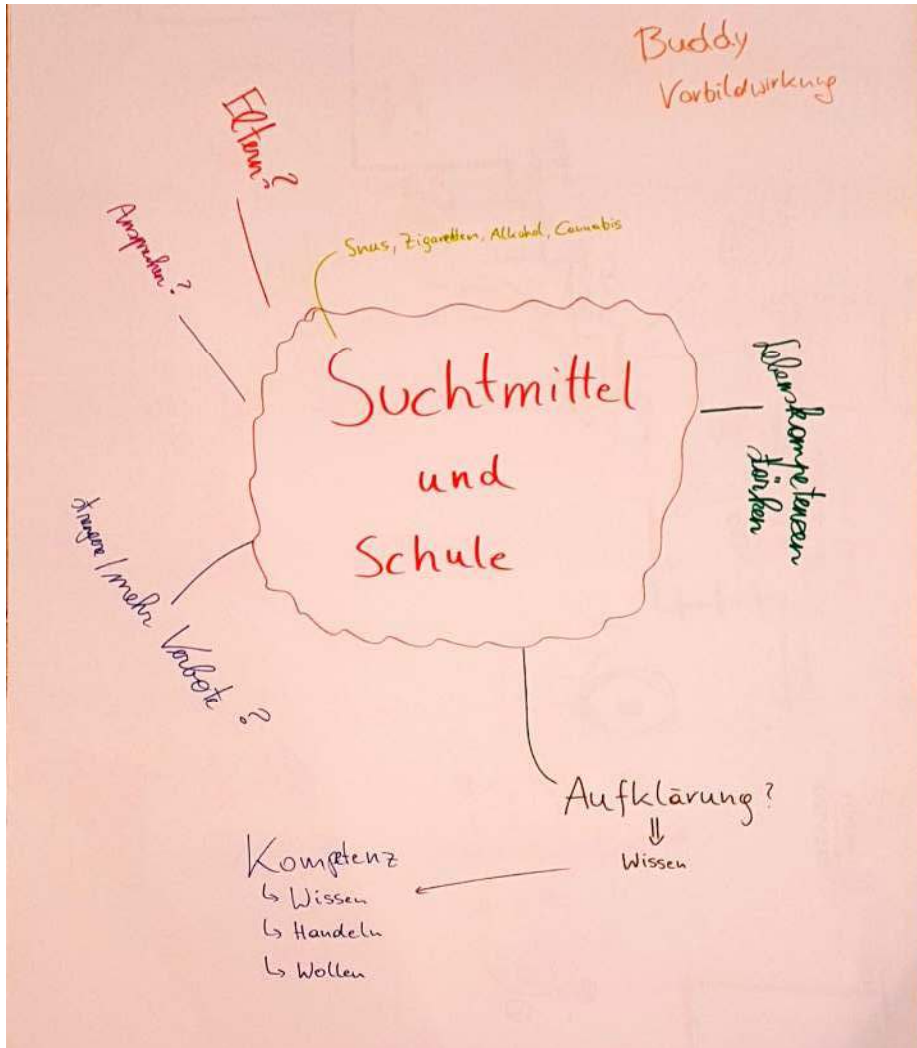 Buddy
Vorbildwirkung
Eltern?
Ansprechen?
Snus, Zigaretten, Alkohol, Cannabis
Suchtmittel
und
Schule
Lebenskompetenzen
stärken
strengere/mehr Verbote?
Aufklärung?
⇓
Wissen
Kompetenz
↳ Wissen
↳ Handeln
↳ Wollen